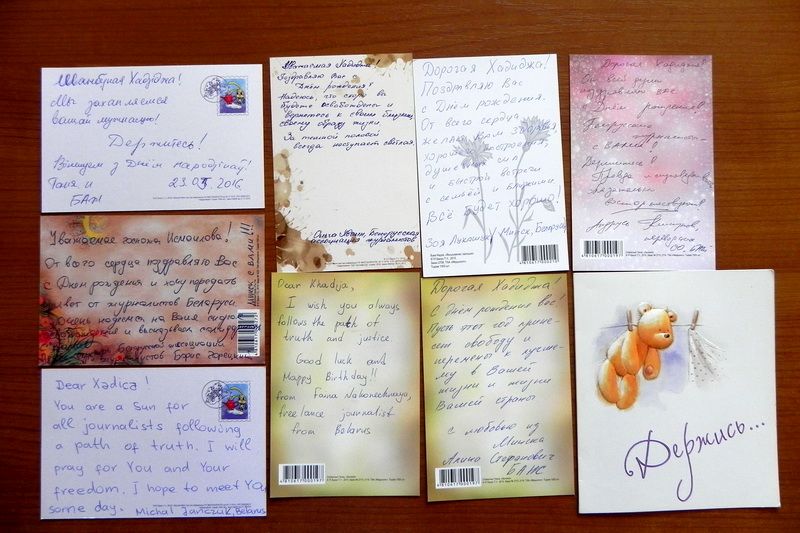 Шаноўная Хадзіджа!
Мы захапляемся
вашай мужнасцю!
Держитесь!
Віншуем з Днём народзінаў!
Таня и
БАЖ
23.05.2016
Уважаемая Хадиджа
Поздравляю Вас с
Днём рождения!
Надеюсь, что скоро вы
будете освобождены и
вернетесь к своим близким,
своему образу жизни.
За темной полосой
всегда наступает светлая.
Ольга Белорусская
ассоциация журналистов
Дорогая Хадиджа!
Поздравляю Вас
с Днем рождения.
От всего сердца
желаю Вам здоровья,
хорошего настроения,
душевных сил
и быстрой встречи
с семьёй и близкими.
Всё будет хорошо!
Зоя Лукашук, Минск, Беларусь
Дорогая Хадиджа!
От всей души
поздравляю вас
с Днем рождения!
Белорусские
журналисты
с вами!
Держитесь!
Правда и справедливость
обязательно
восторжествуют!
Андрусь
Уважаемая госпожа Исмаилова!
От всего сердца поздравляю Вас
с Днем рождения и хочу передать
привет от журналистов Беларуси.
Очень надеемся на Ваше скорое
освобождение и выражаем солидарность
Борис Горецкий
Мы с вами!!!
Dear Khadija,
I wish you always
follows the path of
truth and justice
Good luck and
Happy Birthday!!
from Faina Nakonechnaya,
freelance journalist
from Belarus
4810617000197
Дорогая Хадиджа!
С днём рождения вас!
Пусть этот год прине-
сет свободу и
перемены к лучше-
му в Вашей
жизни и жизни
Вашей страны
с любовью из
Минска
Алина Стефанович
БАЖ
4810617000197
Dear Xədicə!
You are a Sun for
all journalists following
a path of truth. I will
pray for You and Your
freedom. I hope to meet You
some day. Michal Jańczuk, Belarus
Держись...